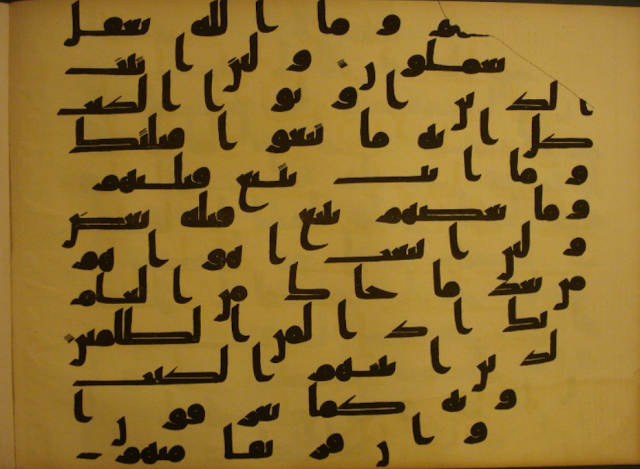 هم وما الله بغفل
يعملون ولئن اتيت
الذين اوتوا الكتب
بكل اية ما تبعوا قبلتك
وما انت بتبع قبلتهم
وما بعضهم بتبع قبلة بعض
ولئن اتبعت اهواهم
من بعد ما جاك من العلم
نك اذا لمن الظلمين
لذين اتينهم الكتب
ونه كما يعرفون ا
وان فريقا منهم